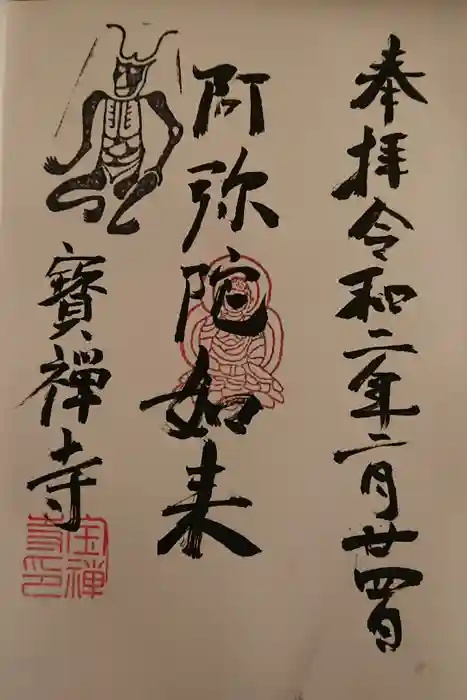 奉拝令和二年二月廿四日
阿弥陀如来
寶禅寺
宝禅寺印